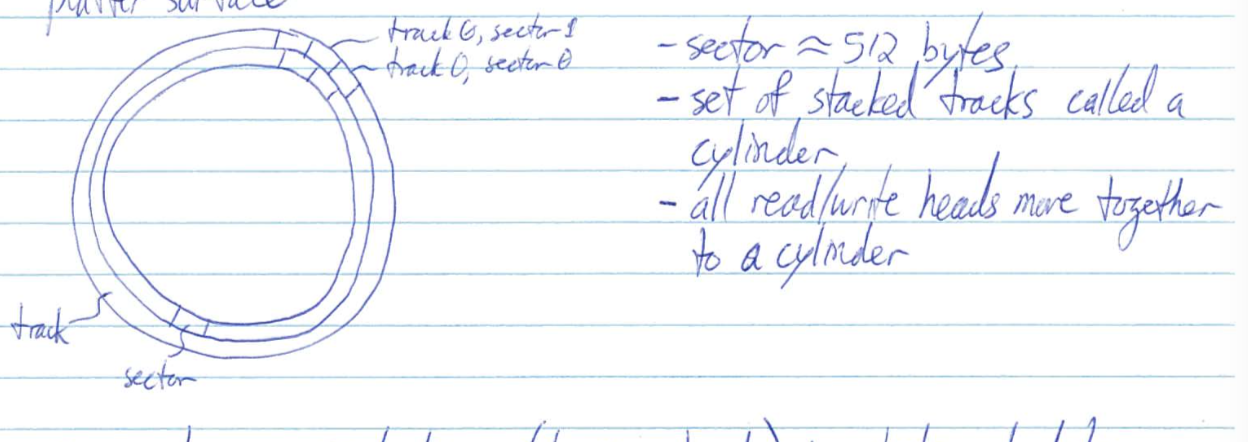 platter surface
track 0, sector 1
track 0, sector 0
track
sector
- sector ≈ 512 bytes
- set of stacked tracks called a
cylinder
- all read/write heads move together
to a cylinder